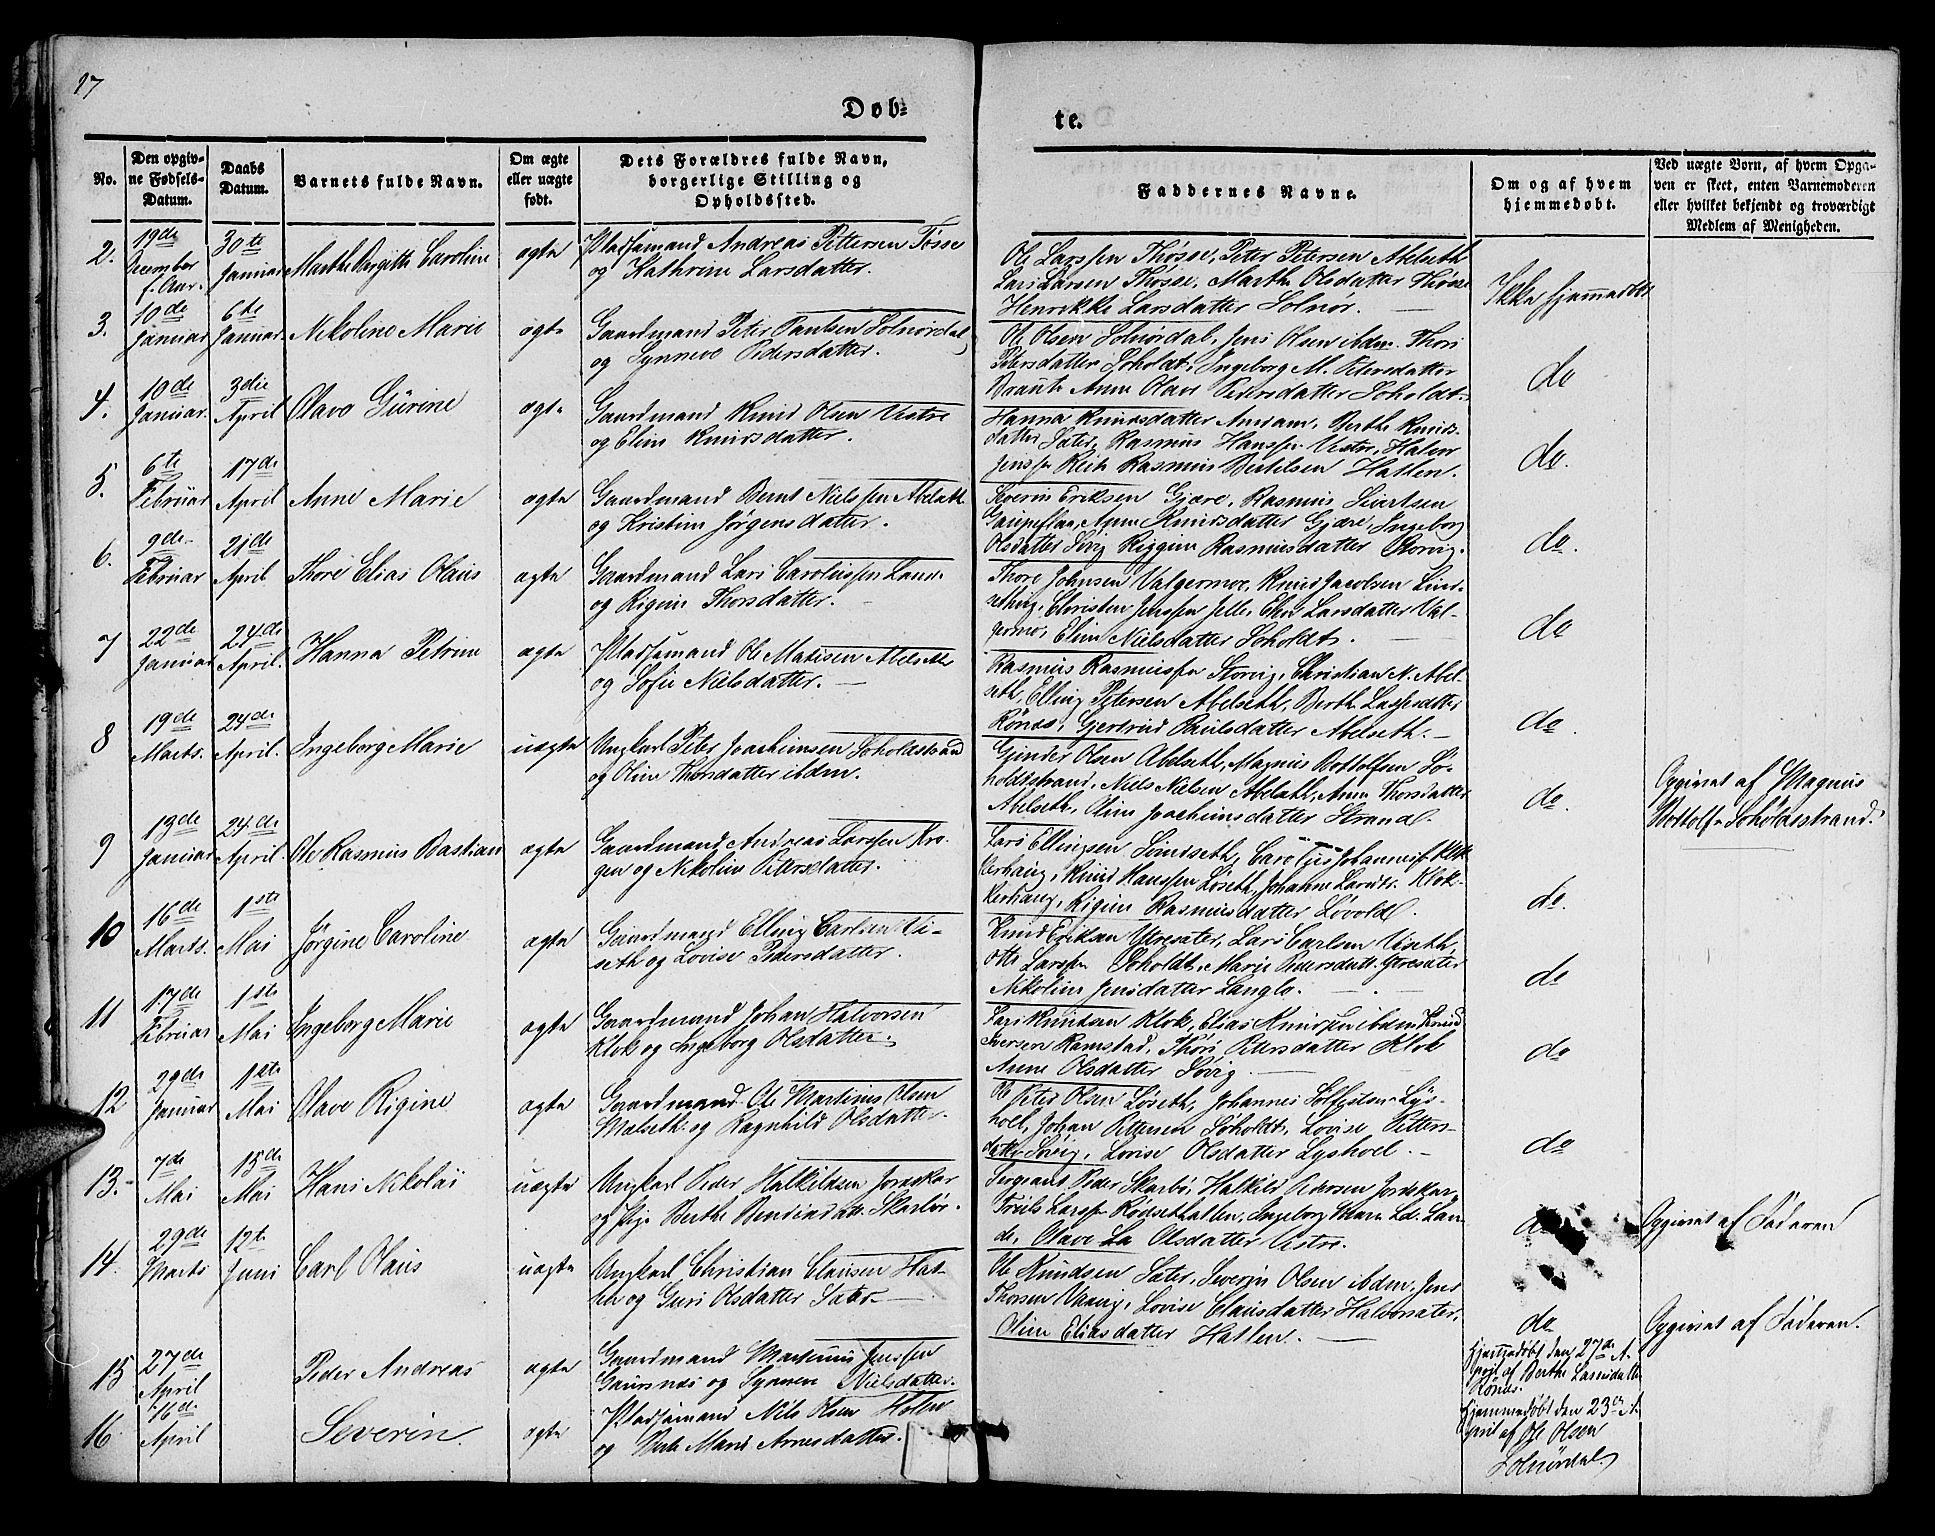 17
Døb=
te.
No.
Den opgiv-
ne Fødsels-
Datum.
Daabs
Datum.
Barnets fulde Navn.
Om ægte
eller uægte
født.
Dets Forældres fulde Navn,
borgerlige Stilling og
Opholdssted.
Faddernes Navne.
Om og af hvem
hjemmedøbt.
Ved uægte Børn, af hvem Opga-
ven er skeet, enten Barnemoderen
eller hvilket bekjendt og troværdigt
Medlem af Menigheden.
2. 19de December f. Aar. 30te Januar Marthe Birgitte Caroline ægte Pladsemand Andreas Pettersen Tøsse
og Kathrine Larsdatter.
Ole Larssen Thøsse, Peter Petersen Abelseth
Lars Larsen Thøsse, Marthe Olsdatter Thøsse
Henrikke Larsdatter Solnør.
Ikke hjemmedøbt
3. 10de Januar 6te Januar Nikoline Marie ægte Gaardmand Peter Paulsen Solnørdal
og Synneve Pedersdatter.
Ole Olsen Solnørdal, Jens Olsen ibdm. Thori
Petersdatter Soholdt, Ingeborg M. Petersdatter
Braute Anne Olave Pedersdatter Soholdt
do
4. 10de Januar 3die April Olava Gurine ægte Gaardmand Knud Olsen Vestre
og Eline Knudsdatter.
Hanna Knudsdatter Amdam, Berthe Knuds-
datter Sæter, Rasmus Hanssen Vestre, Halvor
Jenssen Reite Rasmus Bertelsen Hatlen.
do.
5. 6te Februar 17de April Anne Marie ægte Gaardmand Bernt Nielssen Abelseth
og Kristine Jørgensdatter.
Severin Eriksen Gjære, Rasmus Sivertsen
Gaupeflaa, Anne Knudsdatter Gjære, Ingeborg
Olsdatter Søvig Riggine Rasmusdatter Storvig.
do.
6. 9de Februar 21de April Thore Elias Olaus ægte Gaardmand Lars Carolussen
og Rigine Thorsdatter.
Thore Johnsen Valgermoe, Knud Jacobsen
Christen Jenssen Jelle, Elen Larsdatter Val-
germo, Eline Nielsdatter Soholdt.
do
7 22de Januar 24de April. Hanna Petrine ægte Pladsemand Ole Madsen Abelseth
og Sofie Nielsdatter.
Rasmus Rasmussen Storvig, Christian N. Abel-
seth, Elling Petersen Abelseth, Berthe Lassesdatter
Rønes, Gjertrud Paulsdatter Abelseth.
do
8 19de Marts. 24de April. Ingeborg Marie uægte Ungkarl Peter Joachimsen Soholdstrand
og Oline Thorsdatter ibdm.
Gunder Olsen Abelseth, Magnus Bottolfsen So-
holdtstrand, Niels Nielsen Abelseth, Anne Thorsdatter
Abelseth, Oline Joachimsdatter Strand.
do.
Opgivet af Magnus
Bottolfs. Soholdtstrand.
9 13de Januar 24de April. Ole Rasmus Bastian ægte Gaardmand Andreas Larssen Kro-
gen og Nikoline Petersdatter.
Lars Ellingsen Simiseth, Carolus Johannes. Klok-
kerhaug, Knud Hanssen Løseth, Johanne Larsdt. Klok-
kerhaug, Rigine Rasmusdatter Løvold.
do.
10 16de Marts. 1ste Mai Jørgine Caroline ægte Gaardmand Elling Carlsen Vi-
seth og Lovise Pedersdatter.
Knud Eriksen Ytresæter, Lars Carlsen Viseth,
Otto Larssen Soholdt, Marie Pedersdatt. Ytresæter
Nikoline Jensdatter Langlo.
do
11 17de Februar 1ste Mai Ingeborg Marie ægte Gaardmand Johan Halvorsen
Klok og Ingeborg Olsdatter.
Lars Knudsen Klok, Elias Knudsen ibdm Knud
Iversen Ramstad, Thore Petersdatter Klok
Anne Olsdatter Søvig.
do
12 29de Januar 1ste Mai Olave Rigine ægte Gaardmand Ole Martinus Olsen
Mælseth og Ragnhild Olsdatter.
Ole Peter Olsen Løseth, Johannes Lys-
hoel, Johan Pettersen Søholdt, Lovise Petters-
datter Søvig, Lovise Olsdatter Lyshoel.
do
13. 7de Mai 15de Mai Hans Nikolai uægte Ungkarl Peder Halkildsen Jordskar
og Pige Berthe Bendixdatt. Skarbø.
Sergeant Peder Skarbø, Halkild Pedersen Jordskar,
Troels Larssen Rødsethatlen, Ingeborg
Olave Olsdatter Vestre.
do
Opgivet af Faderen
14. 29de Marts 12te Juni Carl Olaus uægte Ungkarl Christian Clausen Hat-
len og Guri Olsdatter Sæter.
Ole Knudsen Sæter, Severin Olsen ibdm, Jens
Thorsen Vaavig, Lovise Clausdatter Halvorsæter,
Oline Eliasdatter Hatlen.
do
Opgivet af Faderen.
15 27de April Peder Andreas ægte Gaardmand Martinus Jenssen
Gaursnes og Synnev Nielsdatter.
Hjemmedøbt den 27de A-
pril af Berthe Lassesdatter
Rønes.
16. 16de April Severin. ægte Pladsemand Nils Olsen Holen
og Berte Marie Arnesdatter.
Hjemmedøbt den 23de A-
pril af Ole Olsen
Solnørdal.